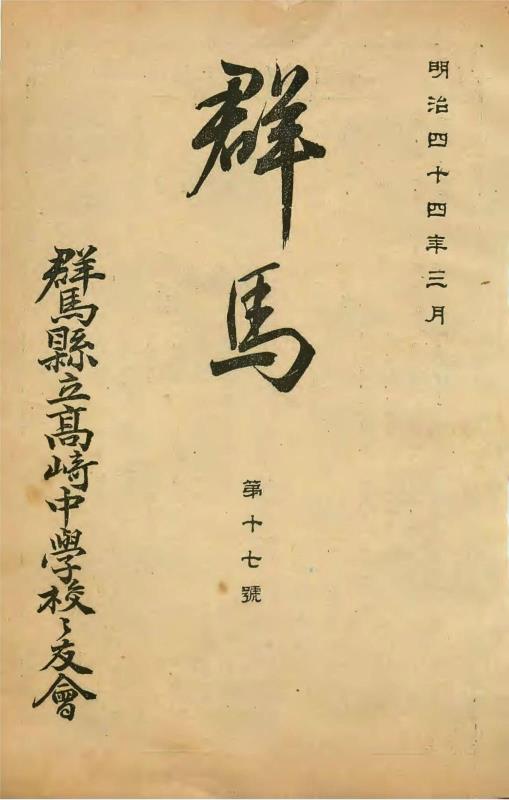 明治四十四年三月
群馬
第十七號
群馬縣立髙﨑中學校々友會